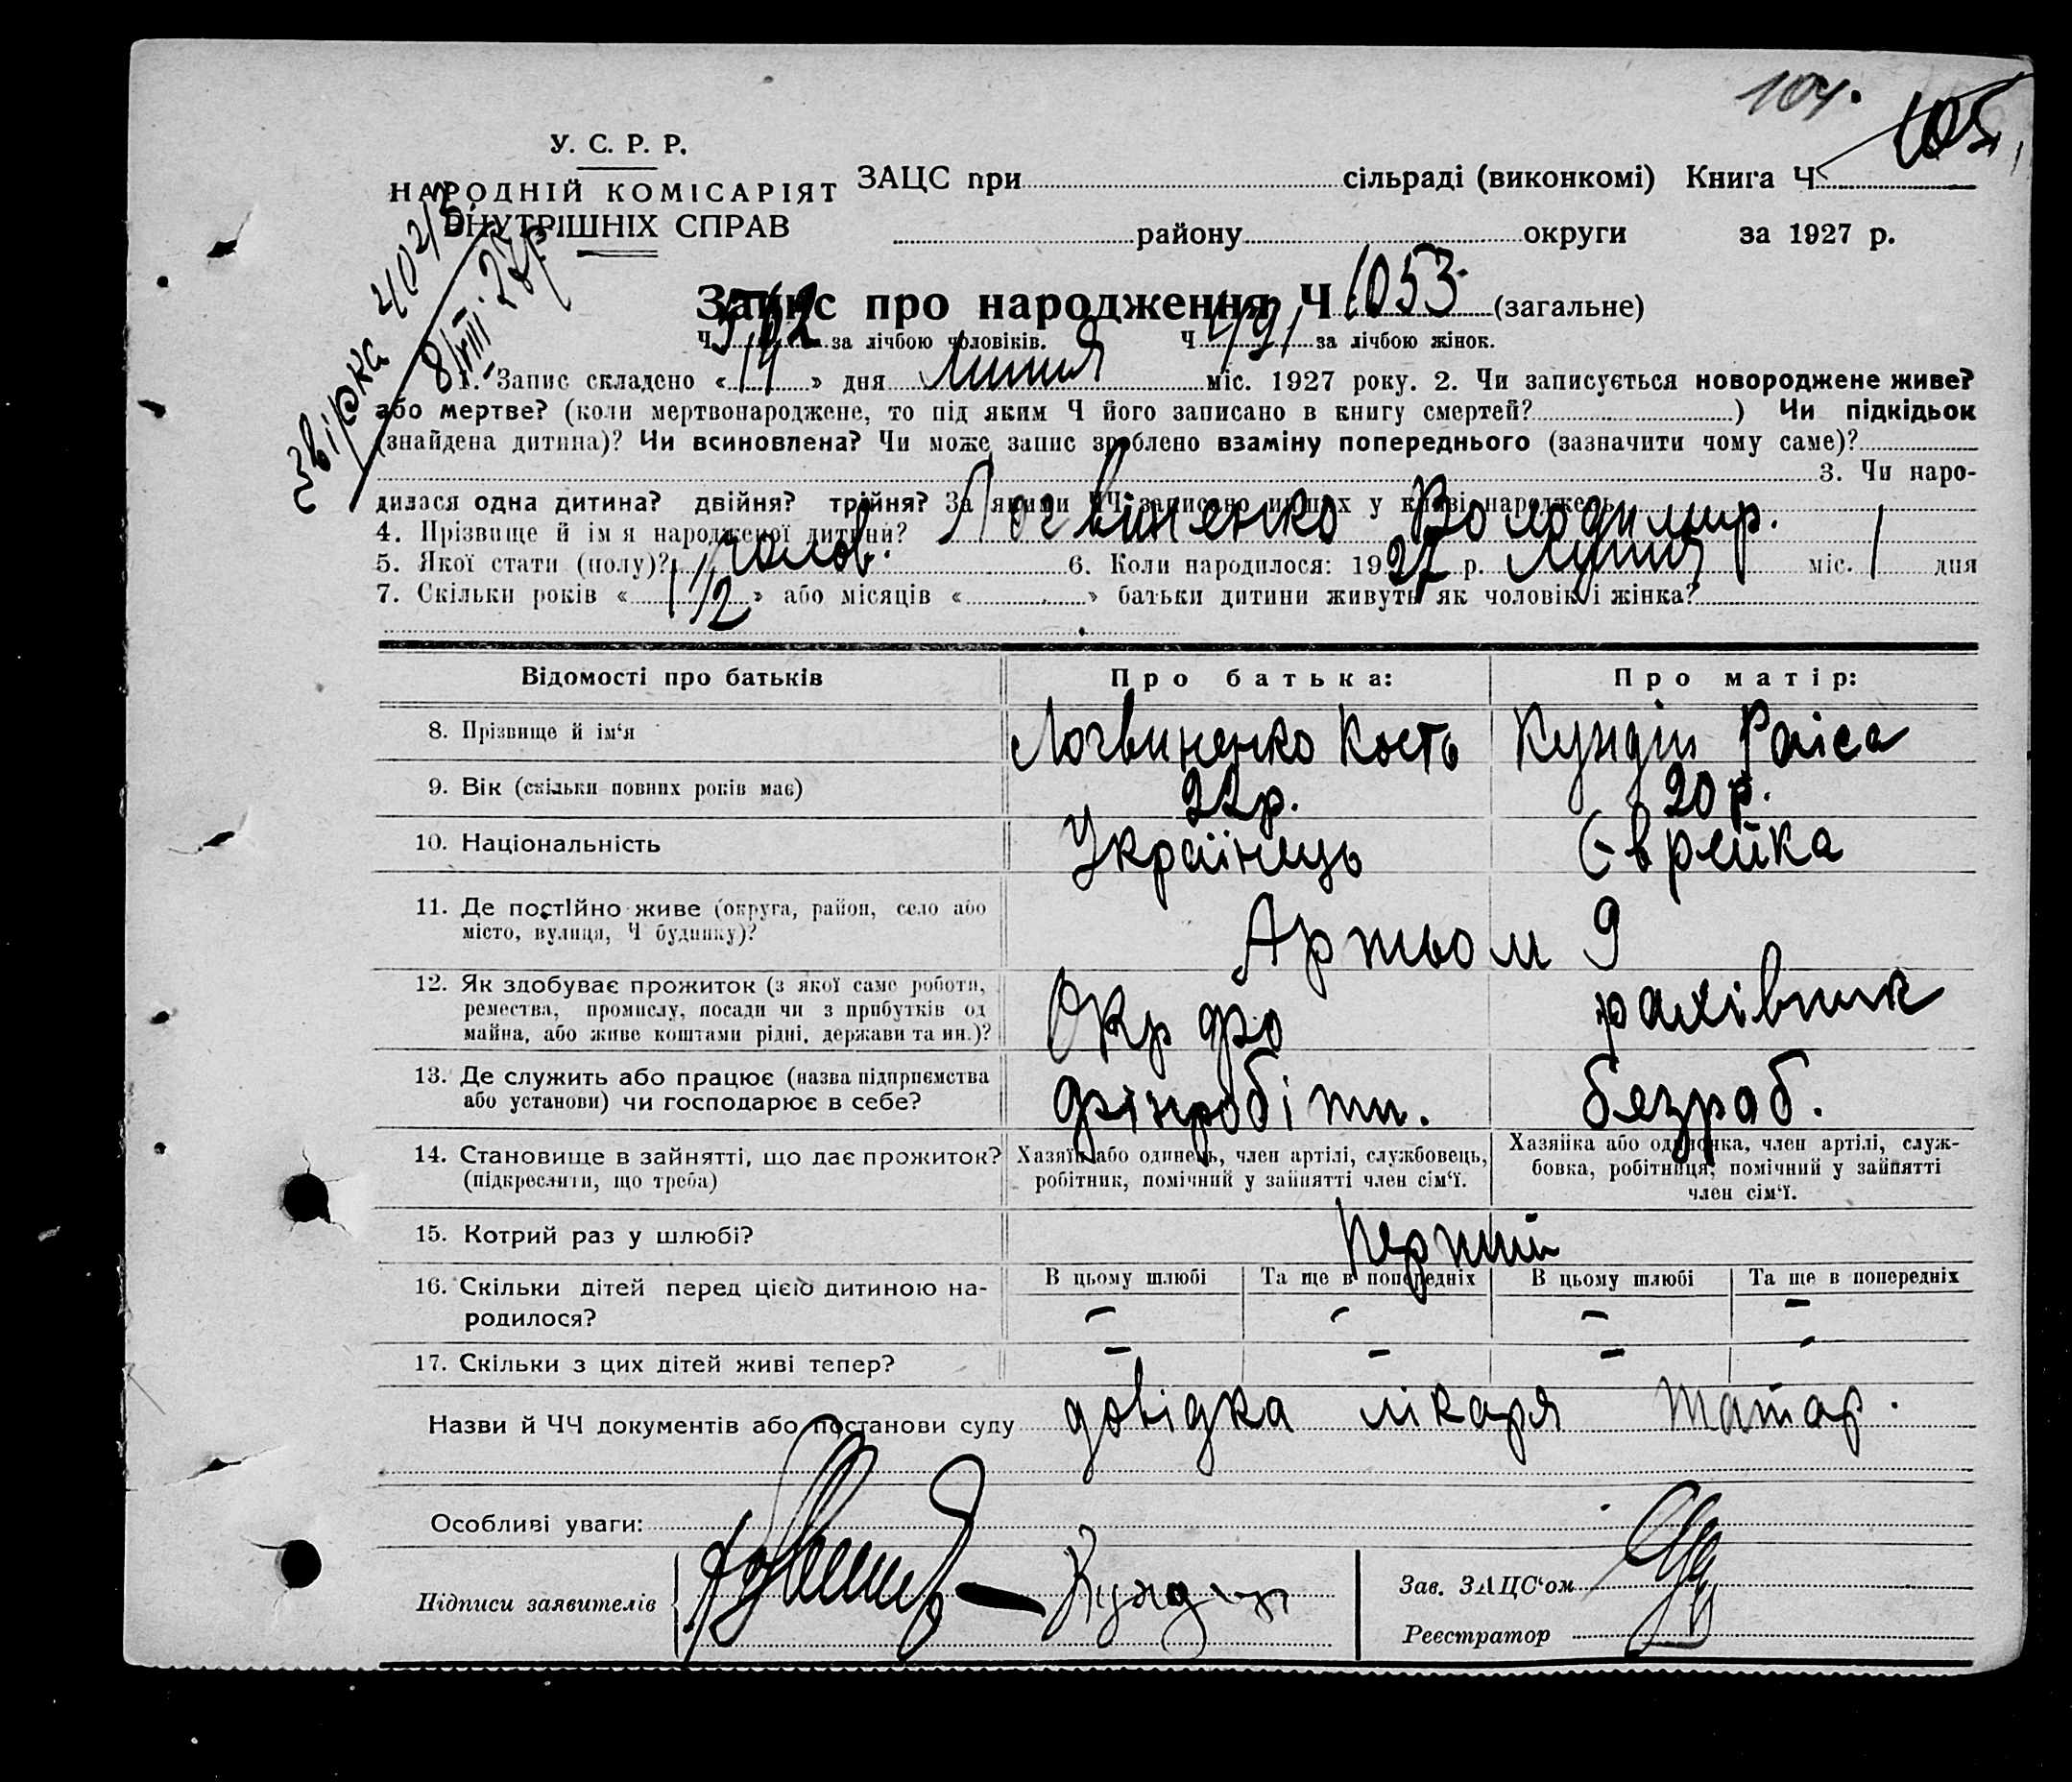 104.
105
У. С. Р. Р.
НАРОДНІЙ КОМІСАРІЯТ
ВНУТРІШНІХ СПРАВ
ЗАЦС при сільраді (виконкомі) Книга Ч.
району округи за 1927 р.
8/VIII-27р.
Запис про народження Ч 1053 (загальне)
Ч 562 за лічбою чоловіків. Ч 491 за лічбою жінок.
1. Запис складено «14» дня липня міс. 1927 року. 2. Чи записується новороджене живе?
або мертве? (коли мертвонароджене, то під яким Ч його записано в книгу смертей? ) Чи підкідьок
(знайдена дитина)? Чи всиновлена? Чи може запис зроблено взаміну попереднього (зазначити чому саме)?
3. Чи наро-
дилася одна дитина? двійня? трійня? За якими ЧЧ записано инших у книзі народжень
4. Прізвище й ім'я народженої дитини? Логвиненко Володимир.
5. Якої стати (полу)? чолов. 6. Коли народилося: 1927 р. Липня міс. 1 дня
7. Скільки років «1 1/2» або місяців « » батьки дитини живуть як чоловік і жінка?
Відомості про батьків Про батька: Про матір:
8. Прізвище й ім'я Логвиненко Кость Кундін Раіса
9. Вік (скільки повних років має) 22р. 20 р.
10. Національність Українець Єврейка
11. Де постійно живе (округа, район, село або
місто, вулиця, Ч будинку)? Артьом 9
12. Як здобуває прожиток (з якої саме роботи,
ремества, промислу, посади чи з прибутків од
майна, або живе коштами рідні, держави та ин.)? Окр фо рахівник
13. Де служить або працює (назва підприємства
або установи) чи господарює в себе? фінробітн. безраб.
14. Становище в зайнятті, що дає прожиток?
(підкреслити, що треба)
Хазяїн або одинець, член артілі, службовець,
робітник, помічний у зайнятті член сім'ї.
Хазяйка або одиночка, член артілі, служ-
бовка, робітниця, помічний у зайнятті
член сім'ї.
15. Котрий раз у шлюбі? перший
16. Скільки дітей перед цією дитиною на-
родилося?
В цьому шлюбі Та ще в попередніх В цьому шлюбі Та ще в попередніх
– – – –
17. Скільки з цих дітей живі тепер? – – – –
Назви й ЧЧ документів або постанови суду довідка лікаря Татар.
Особливі уваги:
Підписи заявителів Кундін
Зав. ЗАЦС'ом
Реєстратор